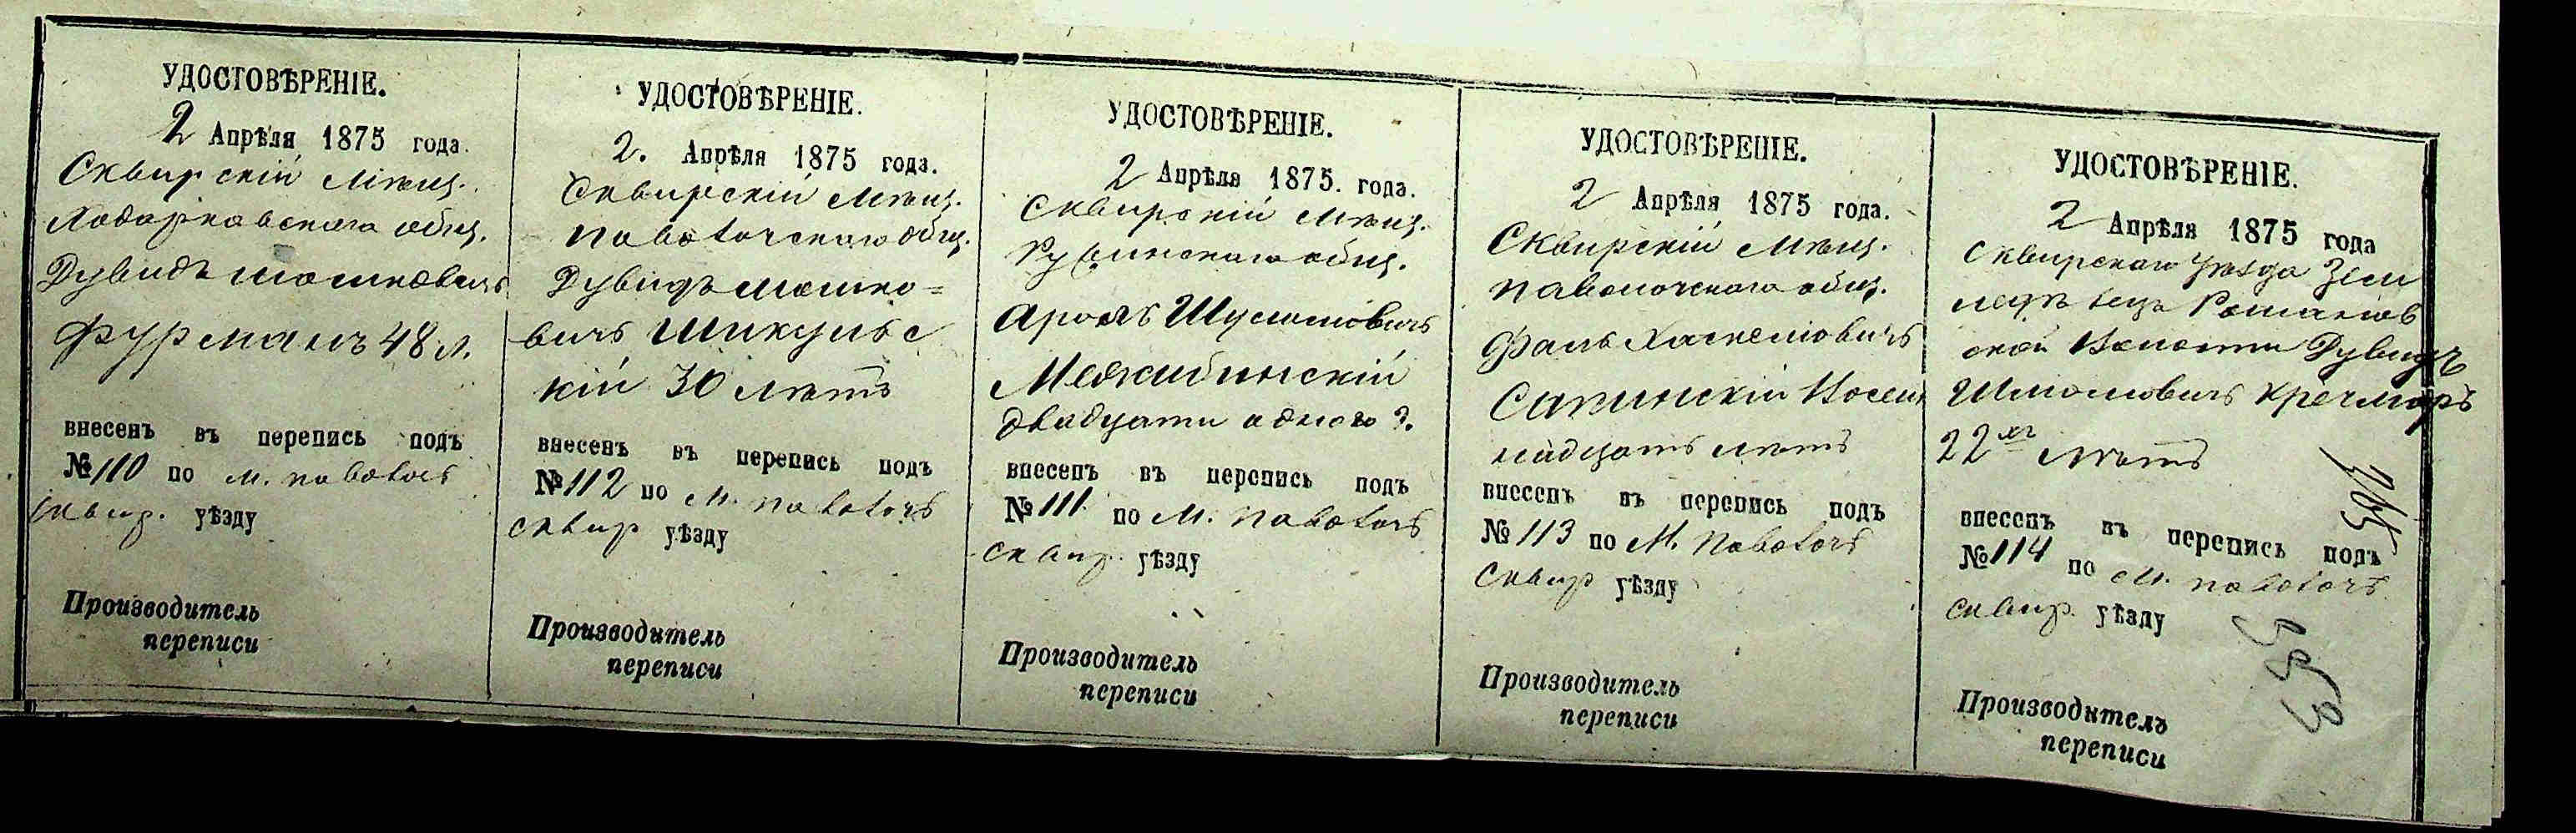 УДОСТОВѢРЕНІЕ.
2 Апрѣля 1875 года.
Сквирскій мѣщ.
Ходорковскаго общ.
Дувидъ Мошковичъ
Фурманъ 48 л.
внесенъ въ перепись подъ
№ 110 по м. Паволочь
сквир. уѣзду
Производитель
переписи
УДОСТОВѢРЕНІЕ.
2. Апрѣля 1875 года.
Сквирскій мѣщ.
Паволочскаго общ.
Дувидъ Мошко=
вичъ Шикульс
кій 30 лѣтъ
внесенъ въ перепись подъ
№ 112 по м. Паволочь
сквир уѣзду
Производитель
переписи
УДОСТОВѢРЕНІЕ.
2 Апрѣля 1875. года.
Сквирскій мѣщ.
Ружинскаго общ.
Аронъ Шулимовичъ
Межибинскій
двадцати одного г.
внесенъ въ перепись подъ
№ 111 по м. Паволочь
сквир. уѣзду
Производитель
переписи
УДОСТОВѢРЕНІЕ.
2 Апрѣля 1875 года.
Сквирскій мѣщ.
Паволочскаго общ.
Хаскелевичъ
надцать лѣтъ
внесенъ въ перепись подъ
№ 113 по м. Паволочь
сквир уѣзду
Производитель
переписи
УДОСТОВѢРЕНІЕ.
2 Апрѣля 1875 года
Сквирскаго уѣзда Зем
Романов
ской Волости Дувидъ
Шмолювичъ Кречмаръ
22хъ лѣтъ
внесенъ въ перепись подъ
№ 114 по м. Паволочь
сквир. уѣзду
Производитель
переписи